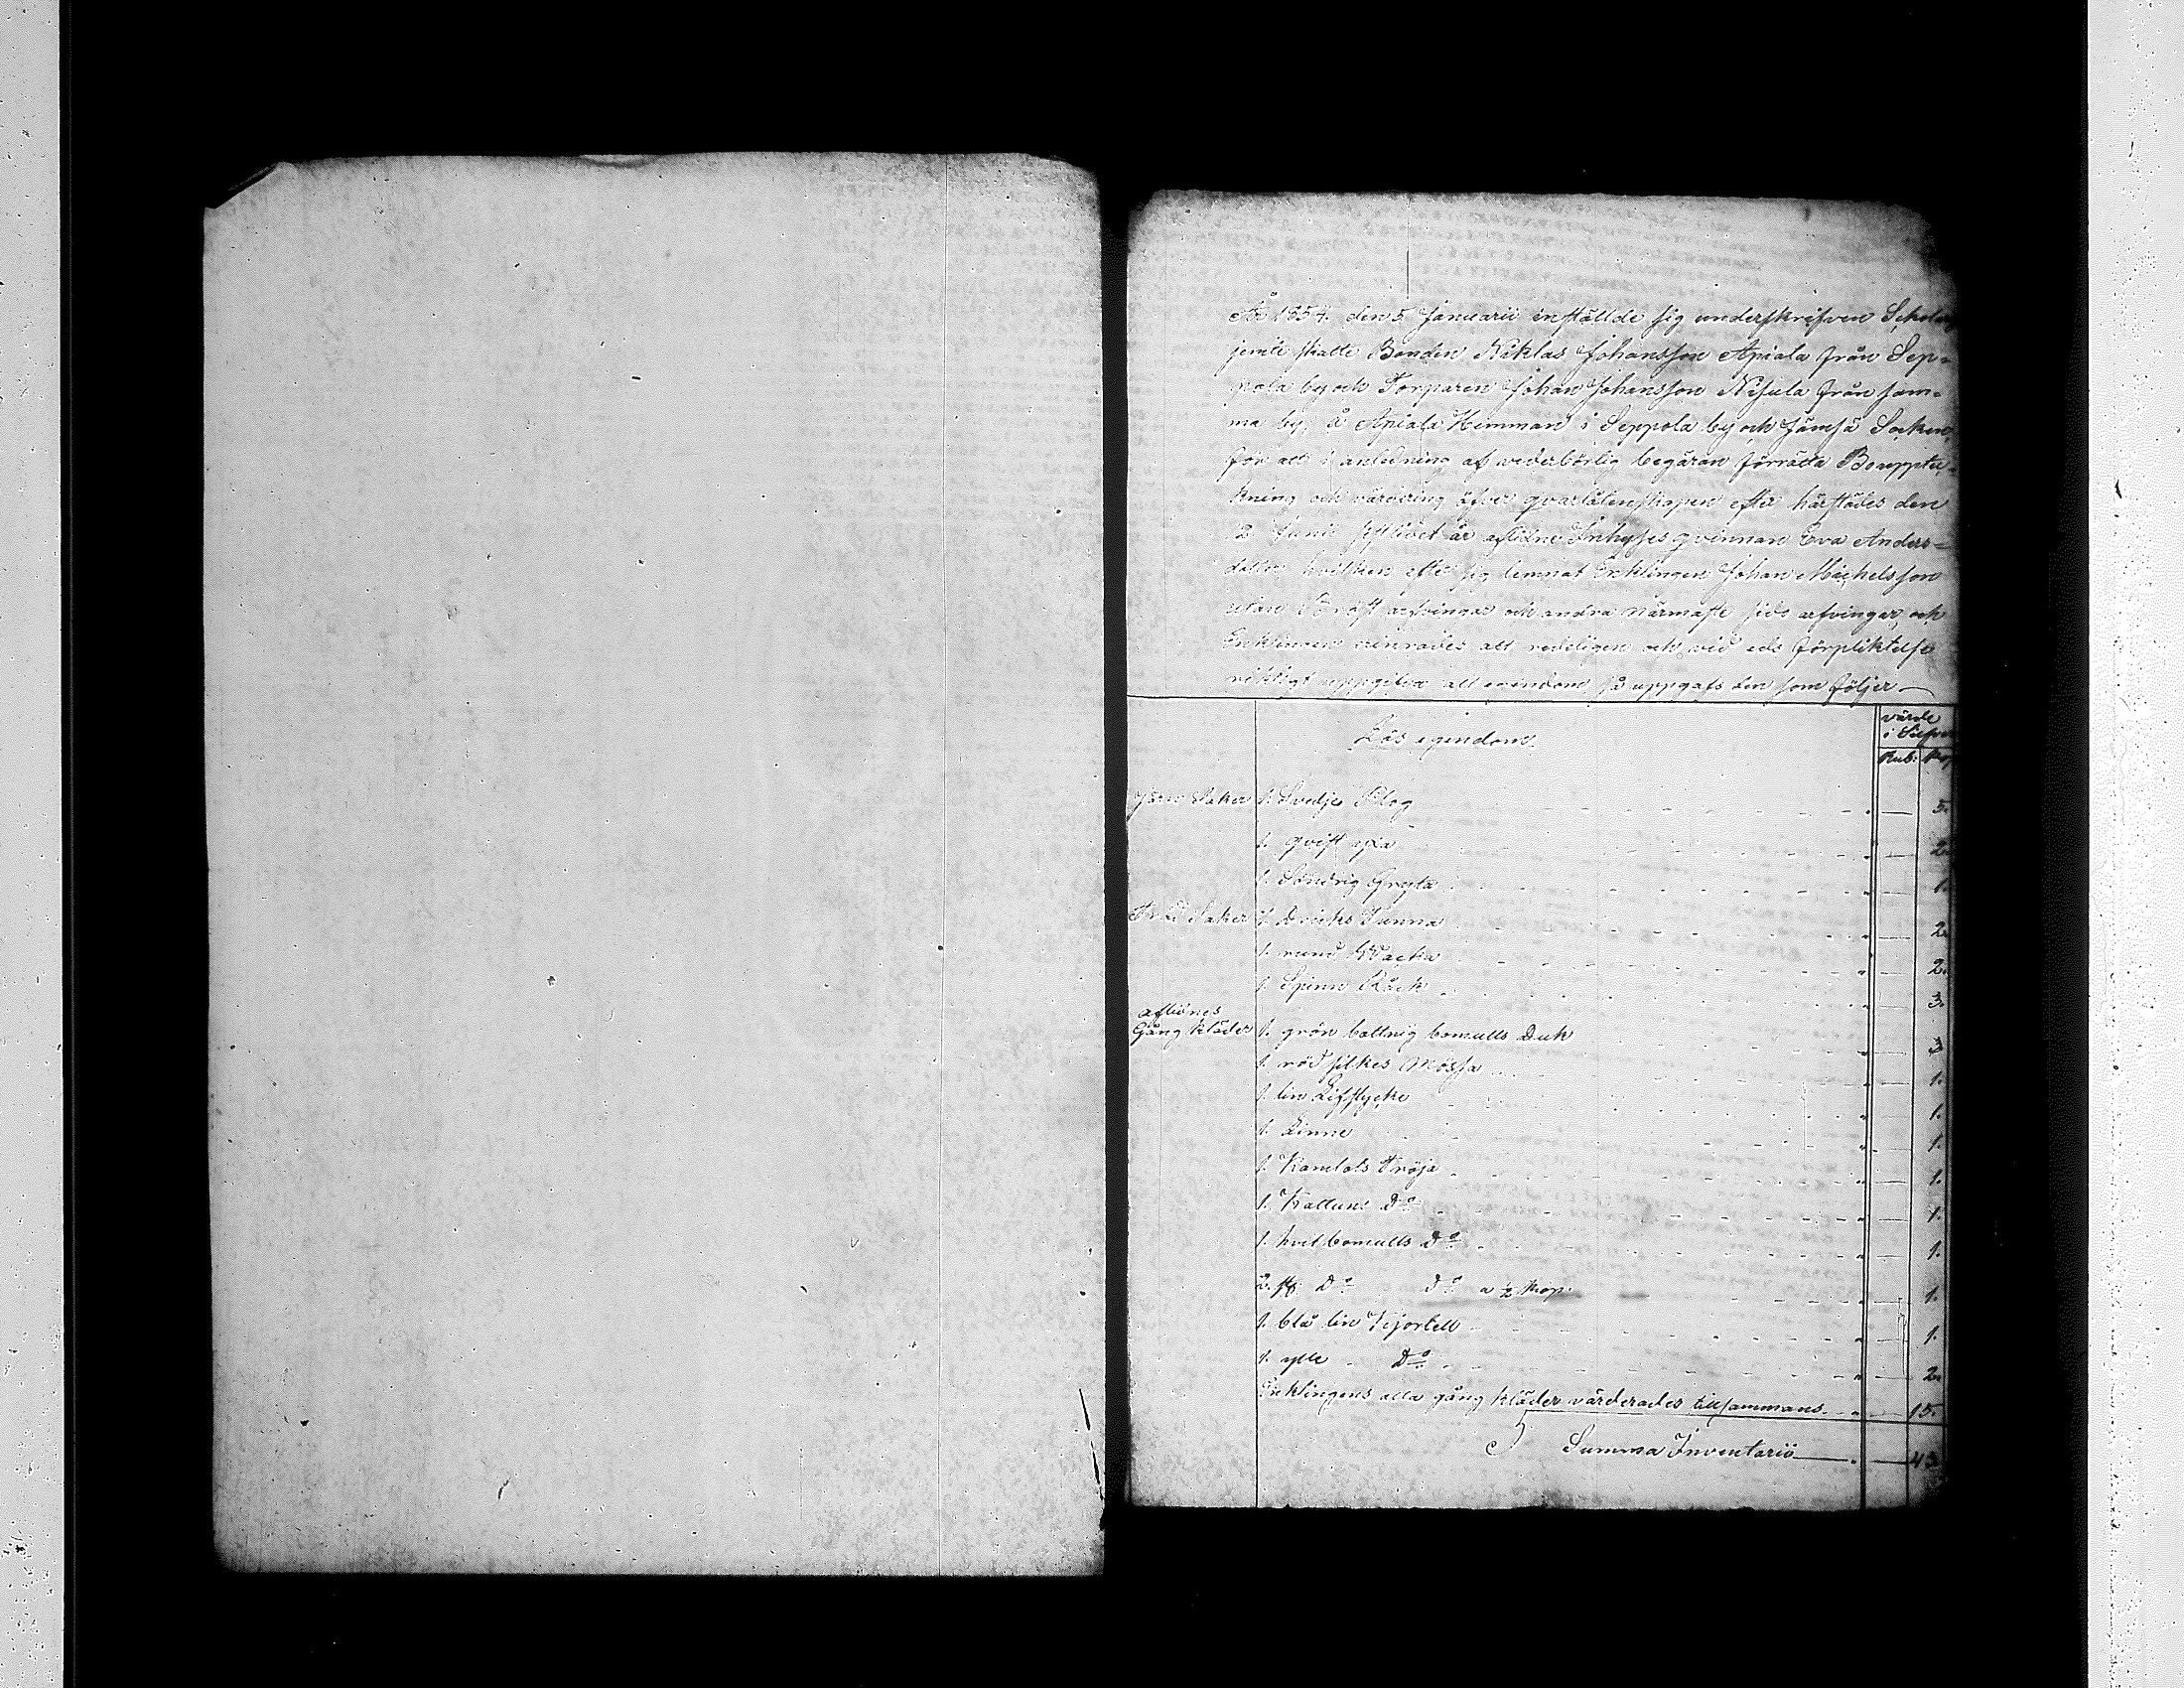 År 1854. den 5 Januarii inställde sig underskrifven
jemte skatte Bonden Niklas Johansson Apiala från Sep-
pola by och Torparen Johan Johansson Nisula från sam-
ma by, å Apiala Hemman i Seppola by och Jämsä Socken,
för att i anledning af vederbörlig begäran förrätta Bouppte-
kning och värdering öfver qvarlåtenskapen efter härstädes den
12 Junii sistlidet år aflidne Inhyses qvinnan Eva Anders-
dotter hvilken efter sig lemnat Enklingen Johan Michelsson
utan Bröst arfvingar och andra närmaste sido arfvingar, och
Enklingen erinrades att redeligen och vid eds förpliktelse
riktigt uppgifva all egendom, så uppgafs den som följer
Lös egendom.
värde
i Silfver
Rub: Kop
Järn Saker 1. Svedje Plog " — 5.
1. qvist yxa " — 2.
1. Söndrig Gryta " — 1.
Träd Saker 1. dricks Tunna " — 2.
1. rund Wacka " — 2.
1. Spinn Råck " — 3.
aflidnes
Gång kläder 1. grön bottnig bomulls Duk " — 3
1. röd silkes Mössa " — 1.
1. lin Lifstycke " — 1.
1. Linne " — 1.
1. Kamlots Tröja " — 1.
1. Kattuns Do " — 1.
1. hvit bomulls Do " — 1.
2. st: Do do a ½ Kop. " — 1.
1. blå lin Kjortell " — 1.
1. ylle Do " — 2.
Enklingens alla gång kläder värderades tillsammans " — 15.
Summa Inventarii " — 43